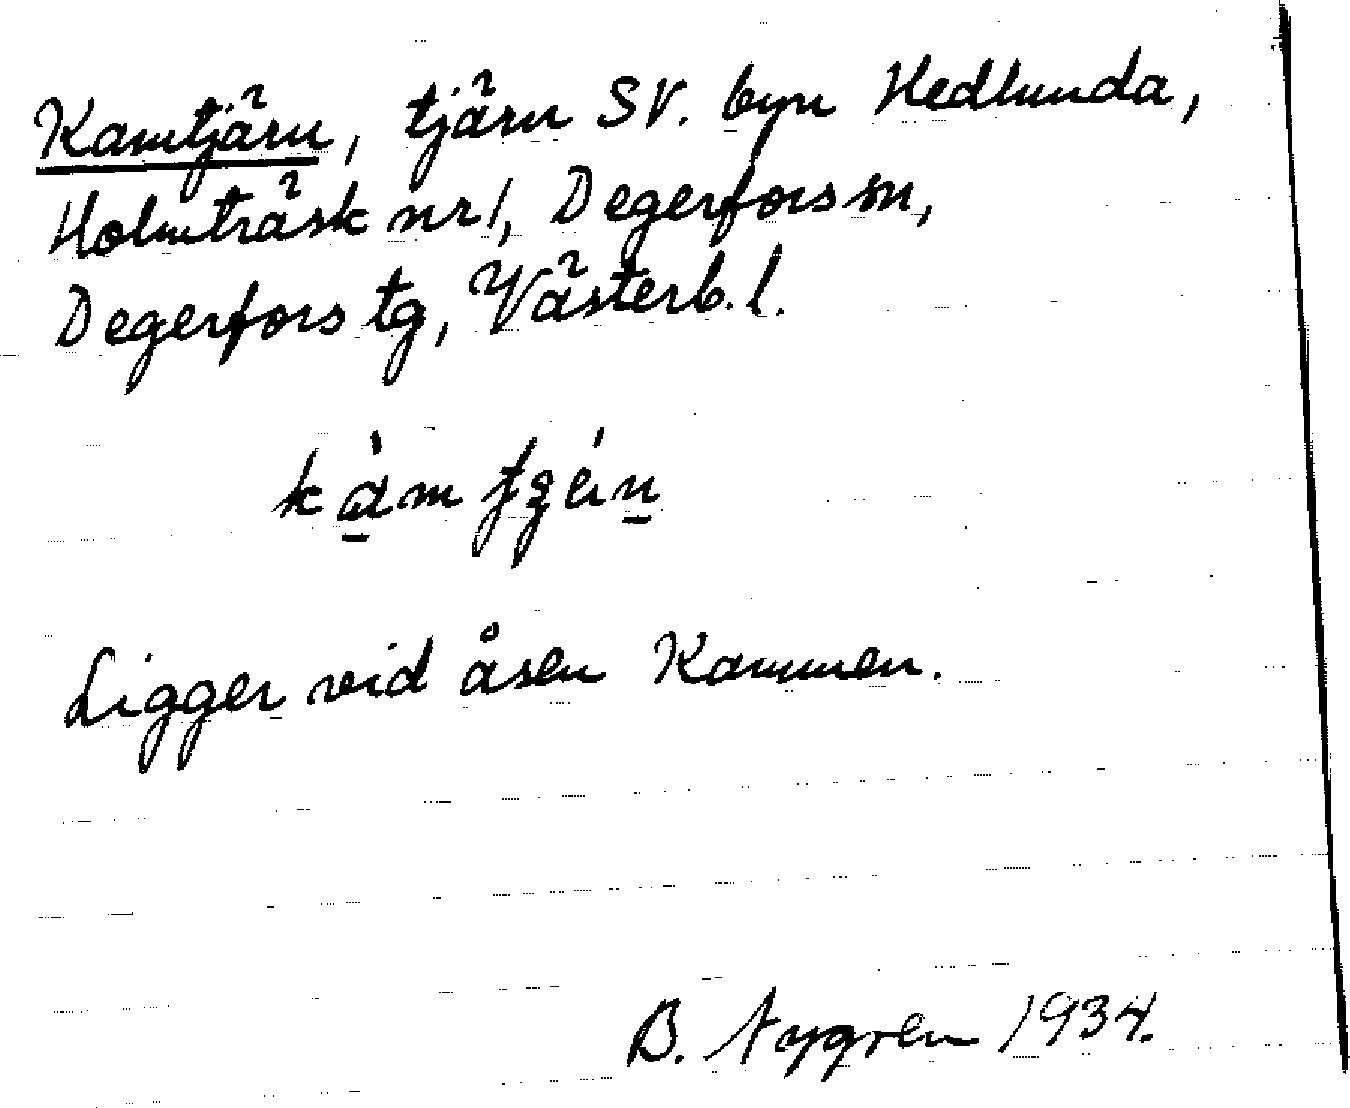 Kamtjärn, tjärn SV. byn Hedlunda,
Holmträsk nr 1, Degerfors sn,
Degerfors tg, Västerb. l.
Ligger vid åsen Kammen.
B. Nygren 1934.